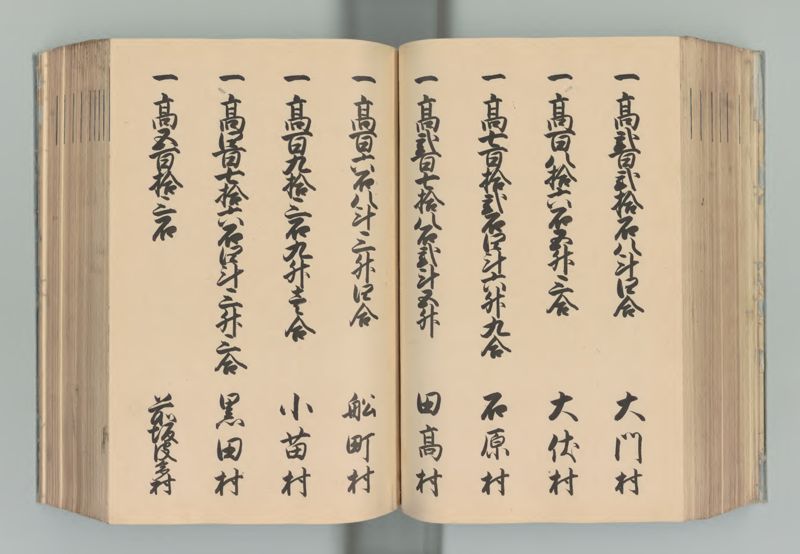 一 高弐百弐拾石八斗四合 大門村
一 高百八拾六石五升三合 大伏村
一 高七百拾弐石四斗六升九合 石原村
一 高弐百七拾八石弐斗五升 田高村
一 高百六石八斗三升四合 舩町村
一 高百九拾三石九升壱合 小苗村
一 高四百七拾六石四斗三升二合 黒田村
一 高五百拾三石 前坂